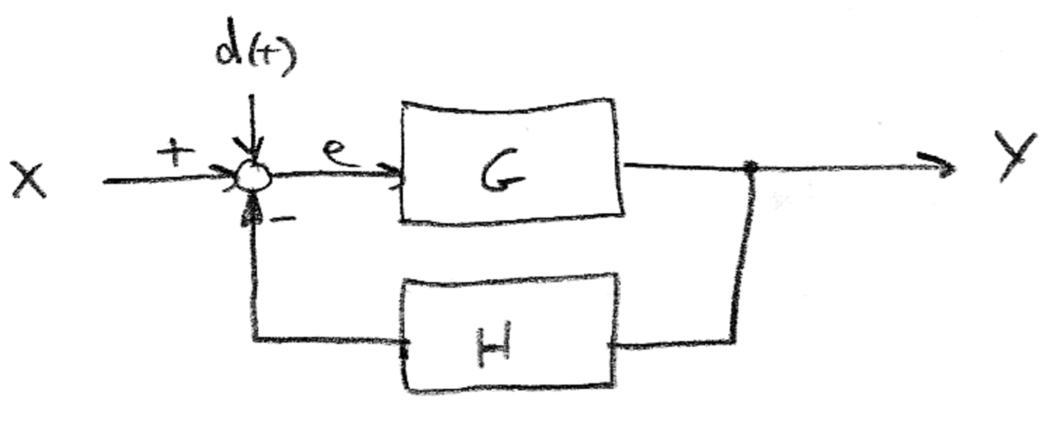 d(t)
X + e G Y
-
H